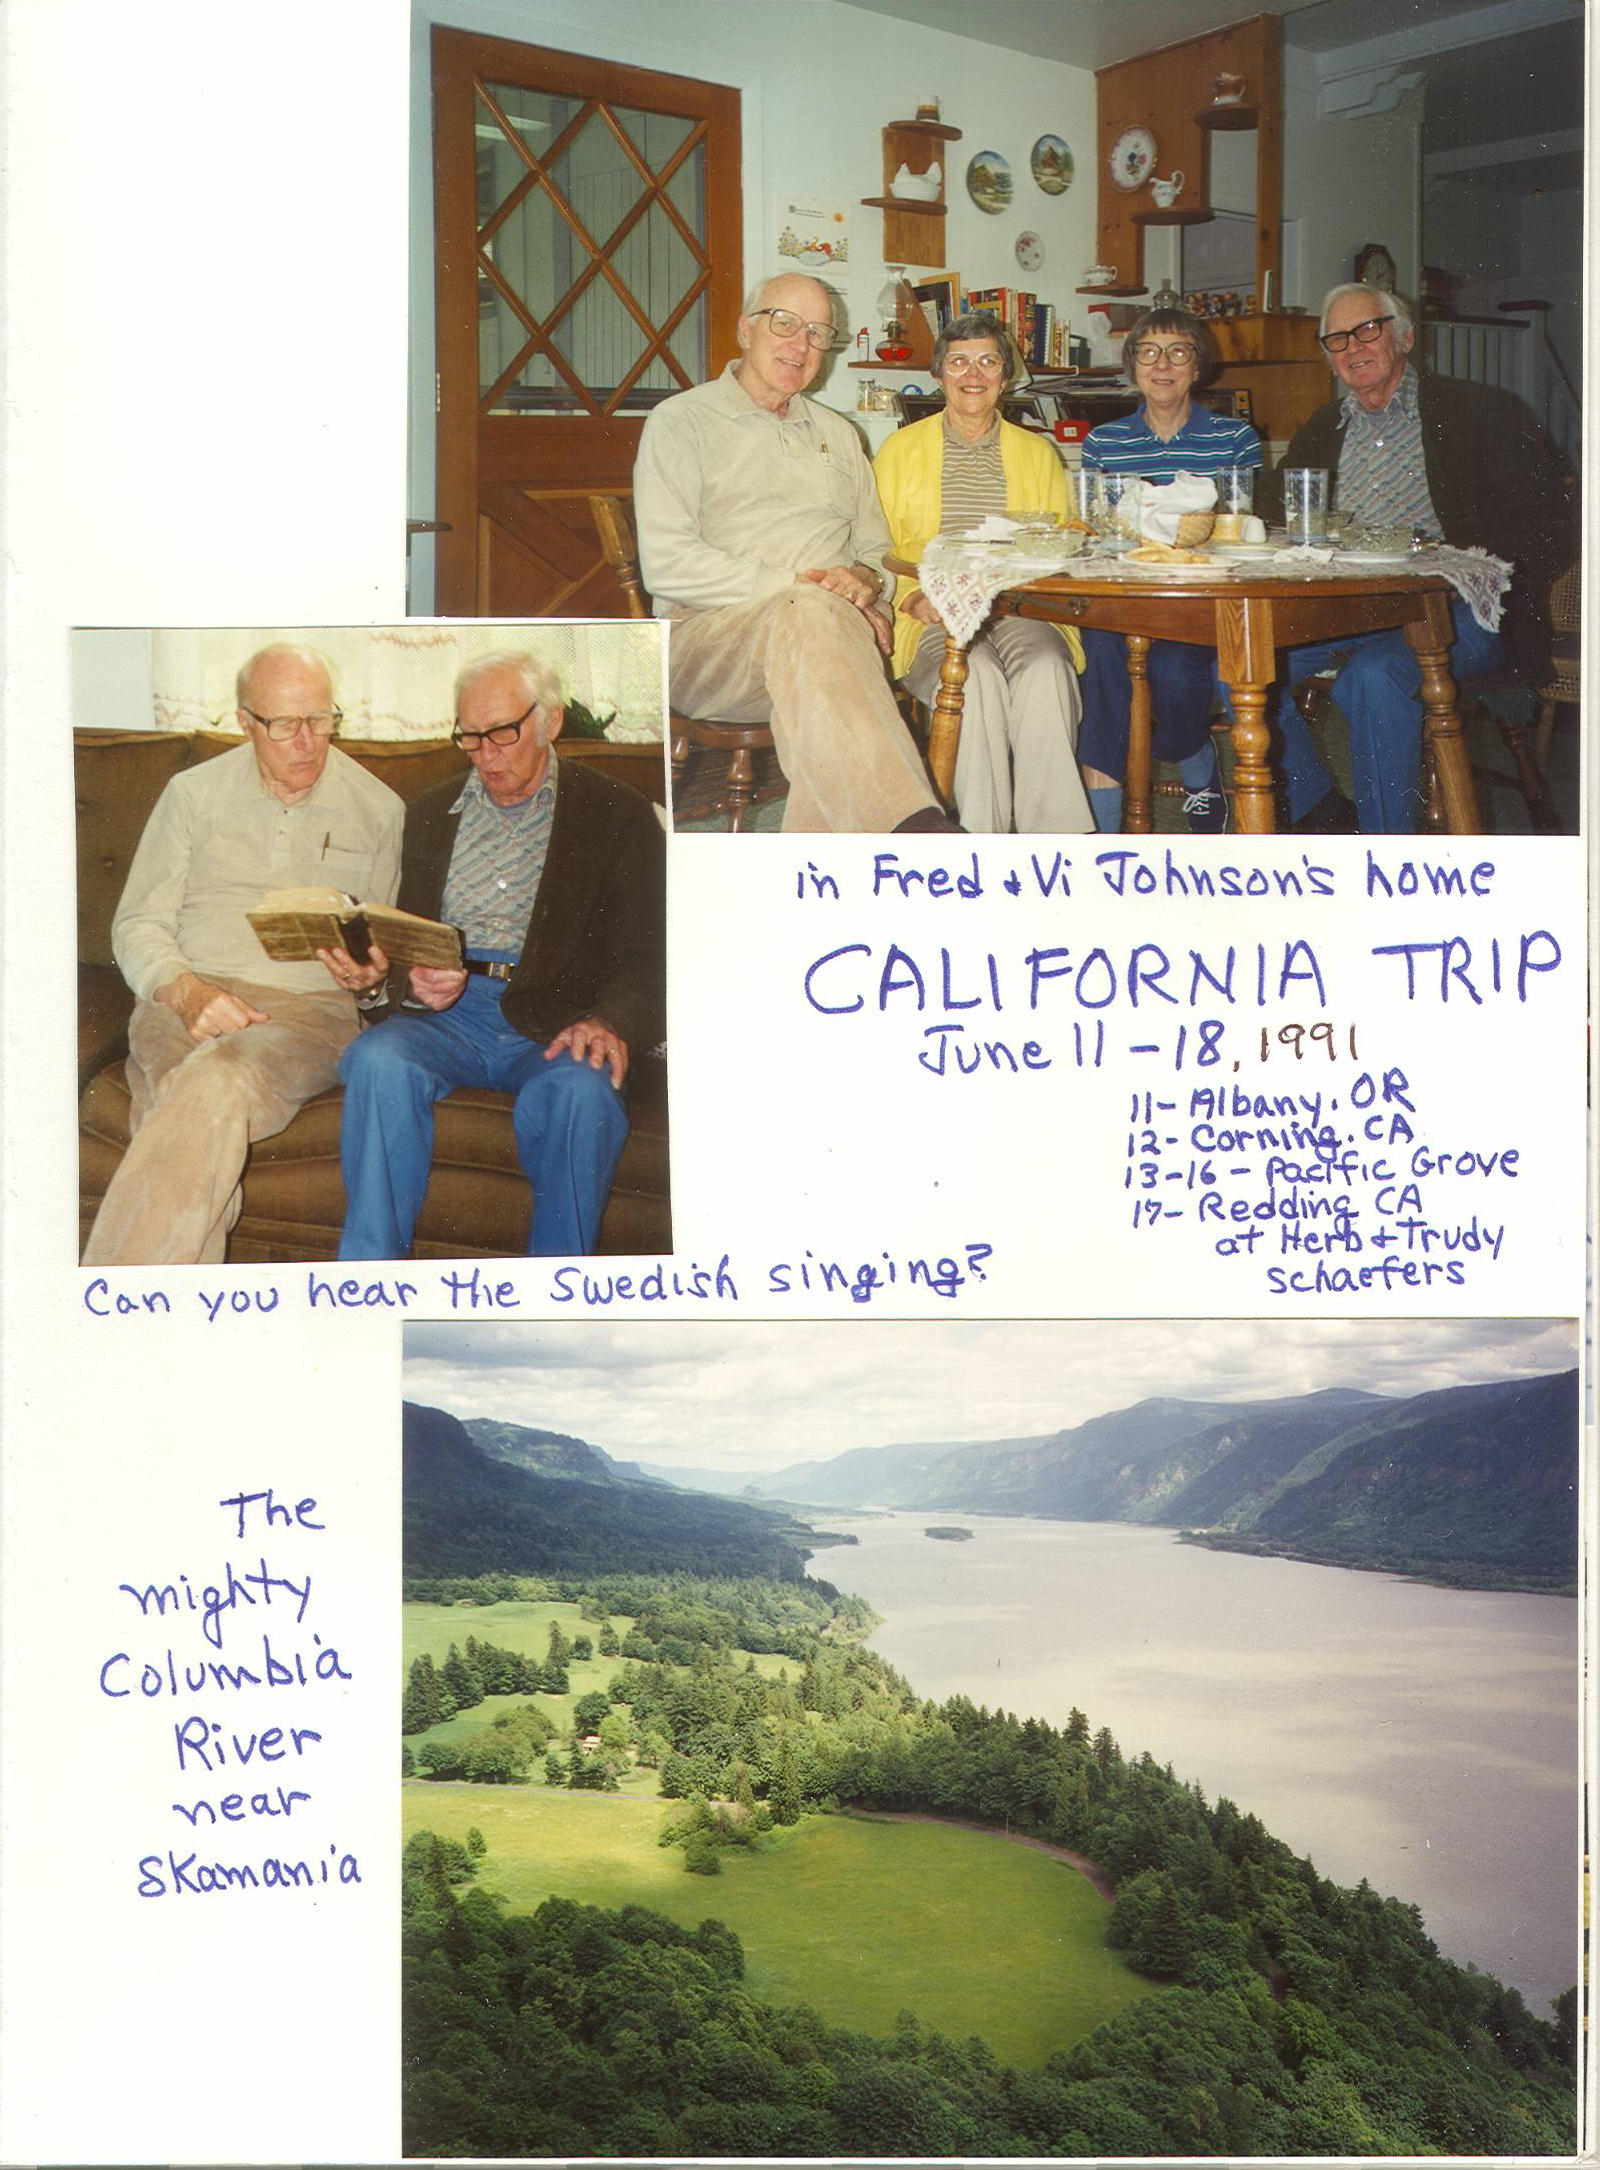 in Fred & Vi Johnson's home
CALIFORNIA TRIP
June 11-18, 1991
11- Albany, OR
12- Corning, CA
13-16 - Pacific Grove
17- Redding CA
at Herb & Trudy
Schaefers
Can you hear the Swedish singing?
The
mighty
Columbia
River
near
Skamania